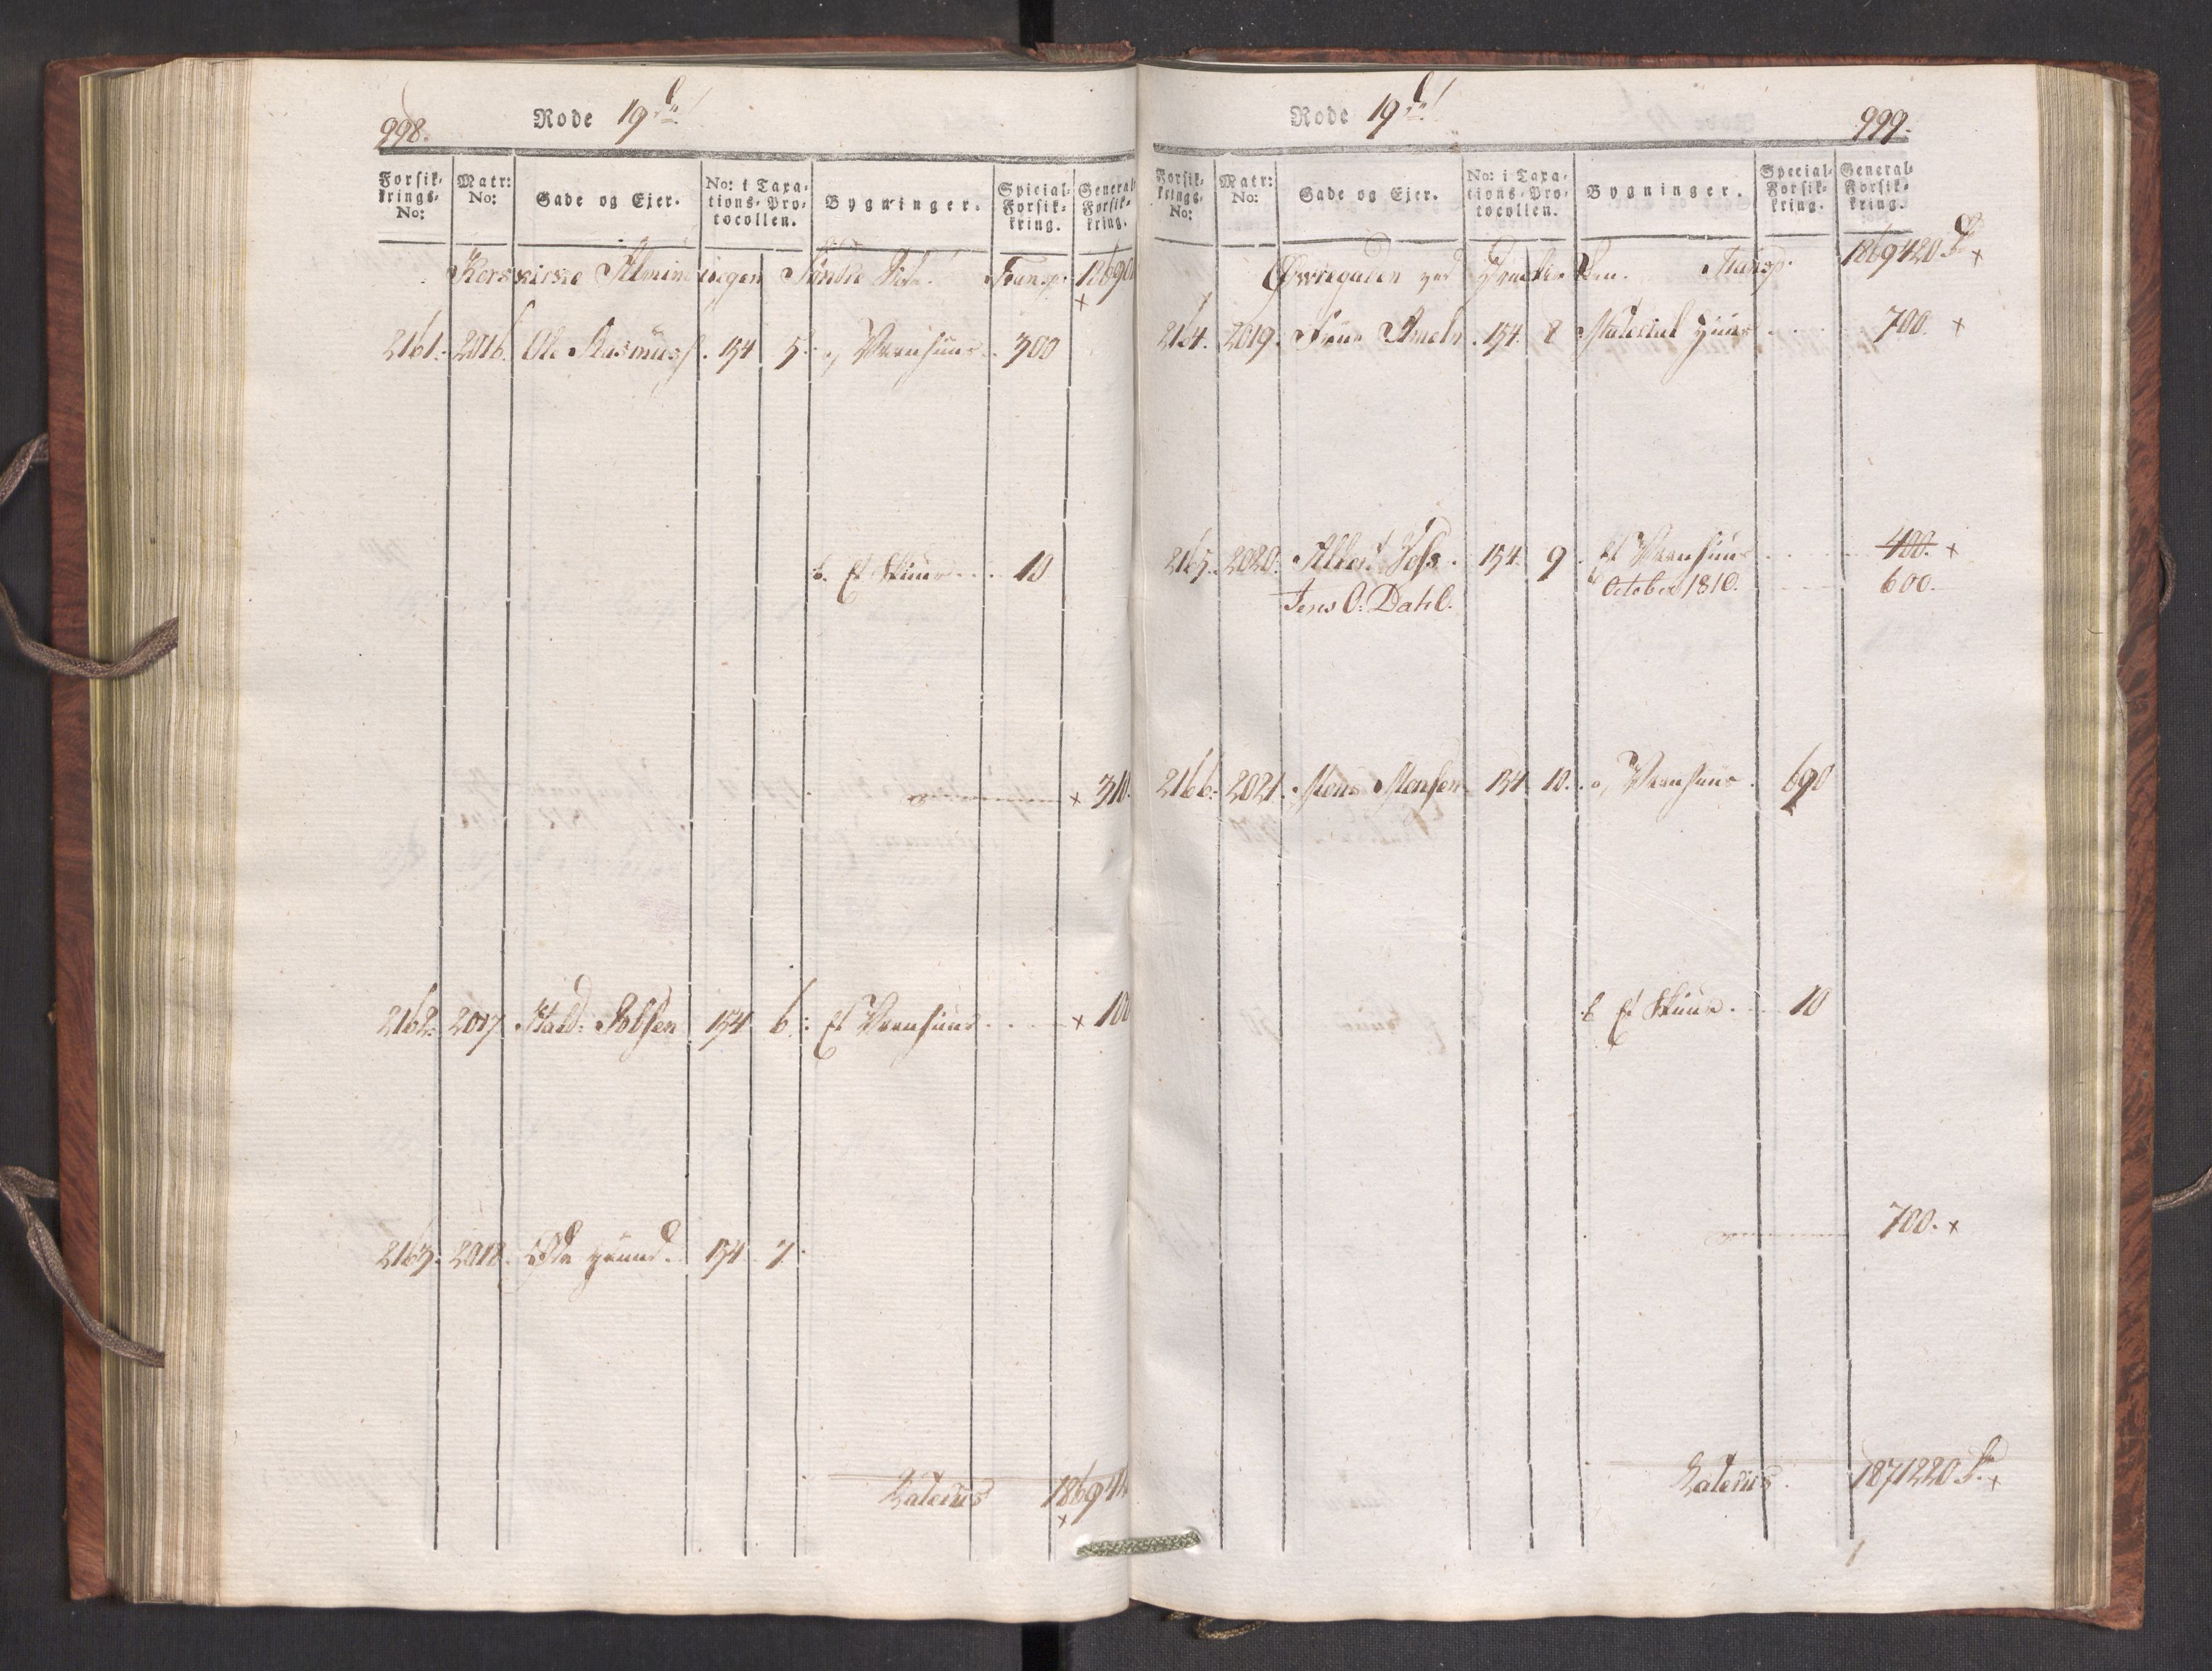 998.
Rode 19de
Forsik-krings-No: Matr: No: Gade og Ejer. No: i Taxa-tions-Pro-tocollen. Bygninger. Special-Forsik-kring. General-Forsik-kring.
Korskirke Almindingen Søndre Side. Transp: 18690
2161. 2016. Ole Rasmuss. 154 5. a, Vaanhuus 300
b. Et Skuur 10
310.
2162. 2017. 154 6: Et Vaanhuus 100
2163. 2018. Øde Grund. 154 7.
Lateris 18694
999.
Rode 19de
Forsik-krings-No: Matr: No: Gade og Ejer. No: i Taxa-tions-Pro-tocollen. Bygninger. Special-Forsik-kring. General-Forsik-kring.
Øvregaden ved Transp. 1869420
2164. 2019. 154. 8 Material Huus 700.
2165. 2020. 154. 9. Et Vaanhuus 400.
Jens O. Dahl. October 1810. 600.
2166. 2021. Mons Monsen 154 10. a, Vaanhuus 690
b Et Skuur. 10
700.
Lateris. 1871220